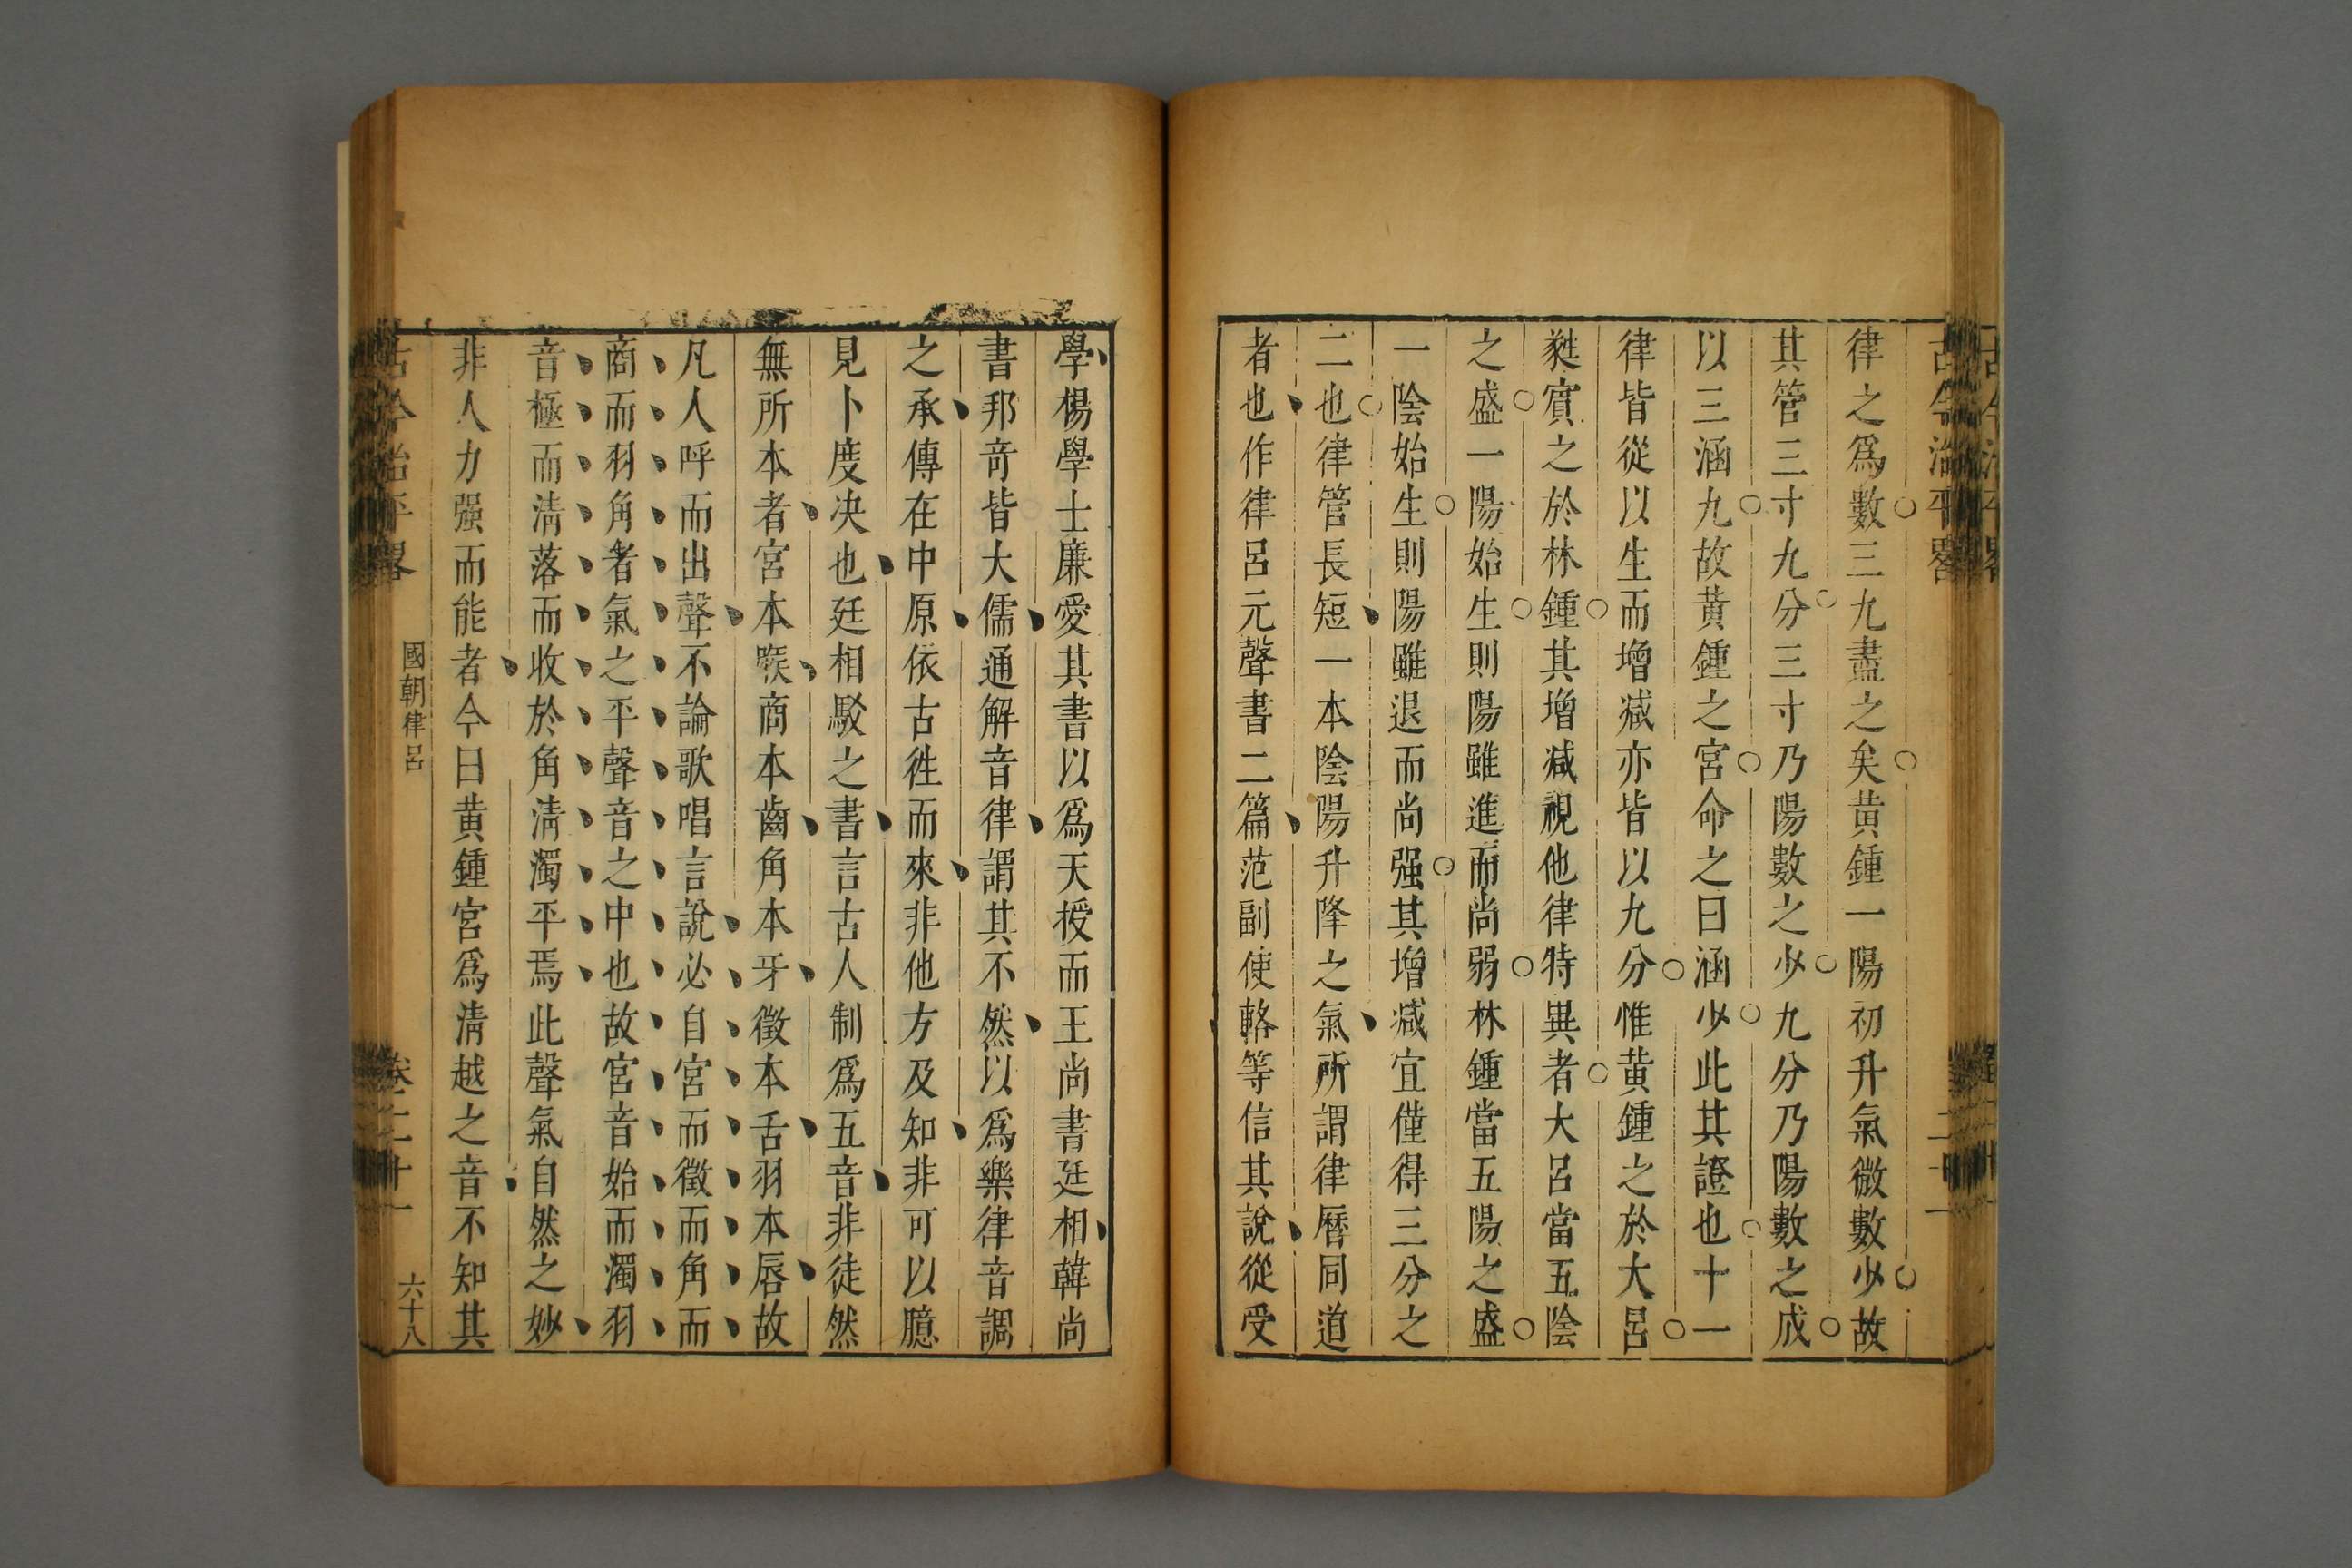 古今治平畧
律之爲數三九盡之矣黄鍾一陽初升氣微數少故
其管三寸九分三寸乃陽數之少九分乃陽數之成
以三涵九故黄鍾之宮命之曰涵少此其證也十一
律皆從以生而增减亦皆以九分惟黄鍾之於大呂
蕤賔之於林鍾其增减視他律特異者大呂當五陰
之盛一陽始生則陽雖進而尚弱林鍾當五陽之盛
一陰始生則陽雖退而尚强其增减宜僅得三分之
二也律管長短一本陰陽升降之氣所謂律曆同道
者也作律呂元聲書二篇范副使輅等信其說從受
學楊學士廉愛其書以爲天授而王尚書廷相韓尚
書邦竒皆大儒通解音律謂其不然以爲樂律音調
之承傳在中原依古徃而來非他方及知非可以臆
見卜度决也廷相駁之書言古人制爲五音非徒然
無所本者宮本喉商本齒角本牙徵本舌羽本唇故
凡人呼而出聲不論歌唱言說必自宮而徵而角而
商而羽角者氣之平聲音之中也故宮音始而濁羽
音極而清落而收於角清濁平焉此聲氣自然之妙
非人力强而能者今曰黄鍾宮爲清越之音不知其
古今治平畧
國朝律呂
卷二十一
六十八